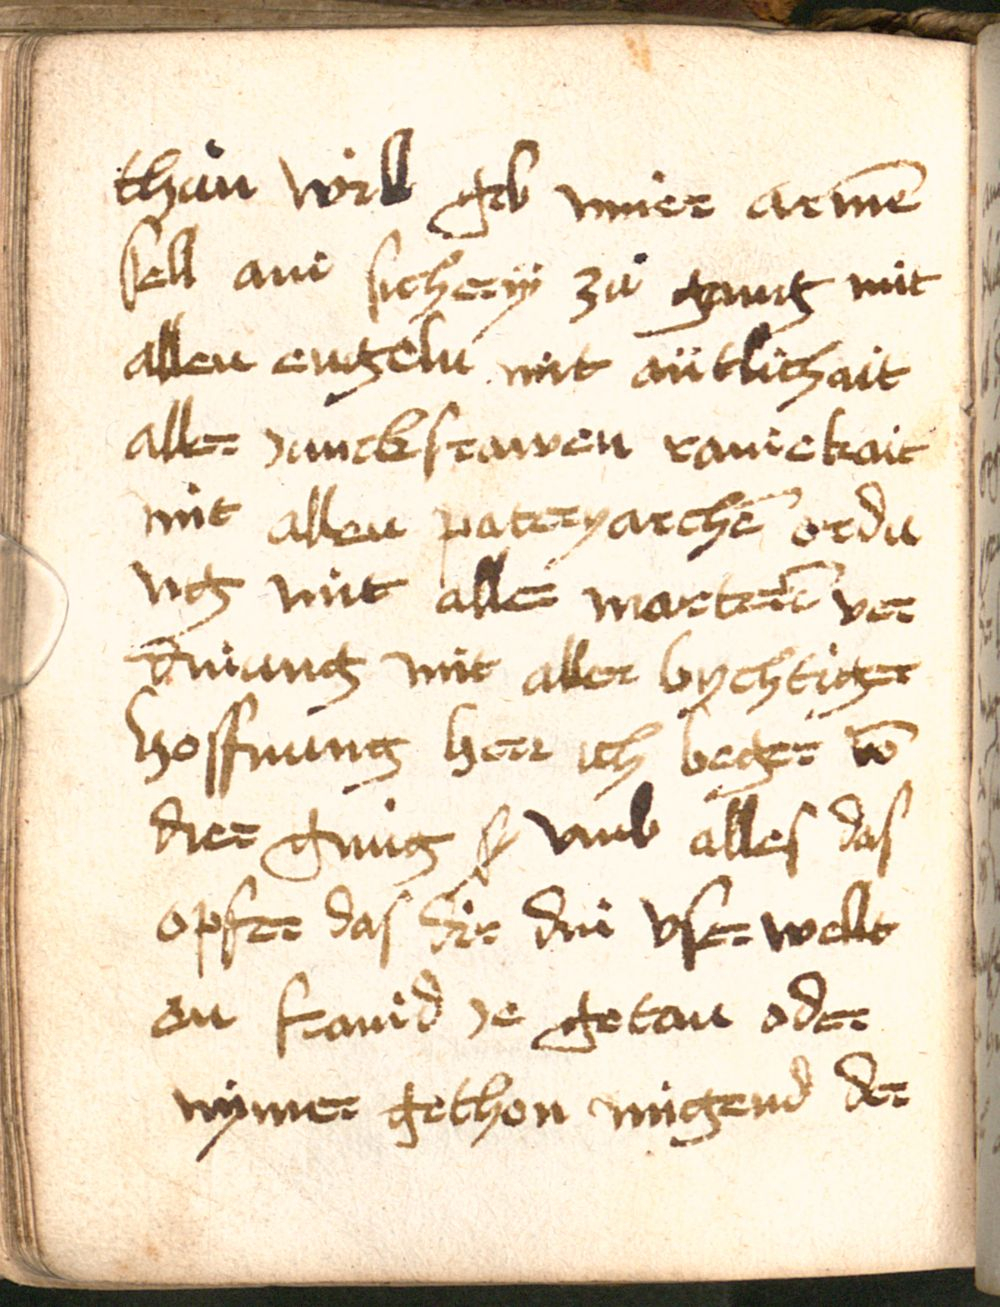 thün will geb miner armē
sell ain sichery zů gang mit
allen engeln mit aütlichait
aller junckfrawen rainickait
mit allen pateryarchē ordn
ng mit aller martrer ver
miung mit aller bychtiger
hoffnung herr ich beger vō
dier gnug vmb alles das
opfer das dir din vser wellt
on fraind je getan oder
nymer gethon migend der